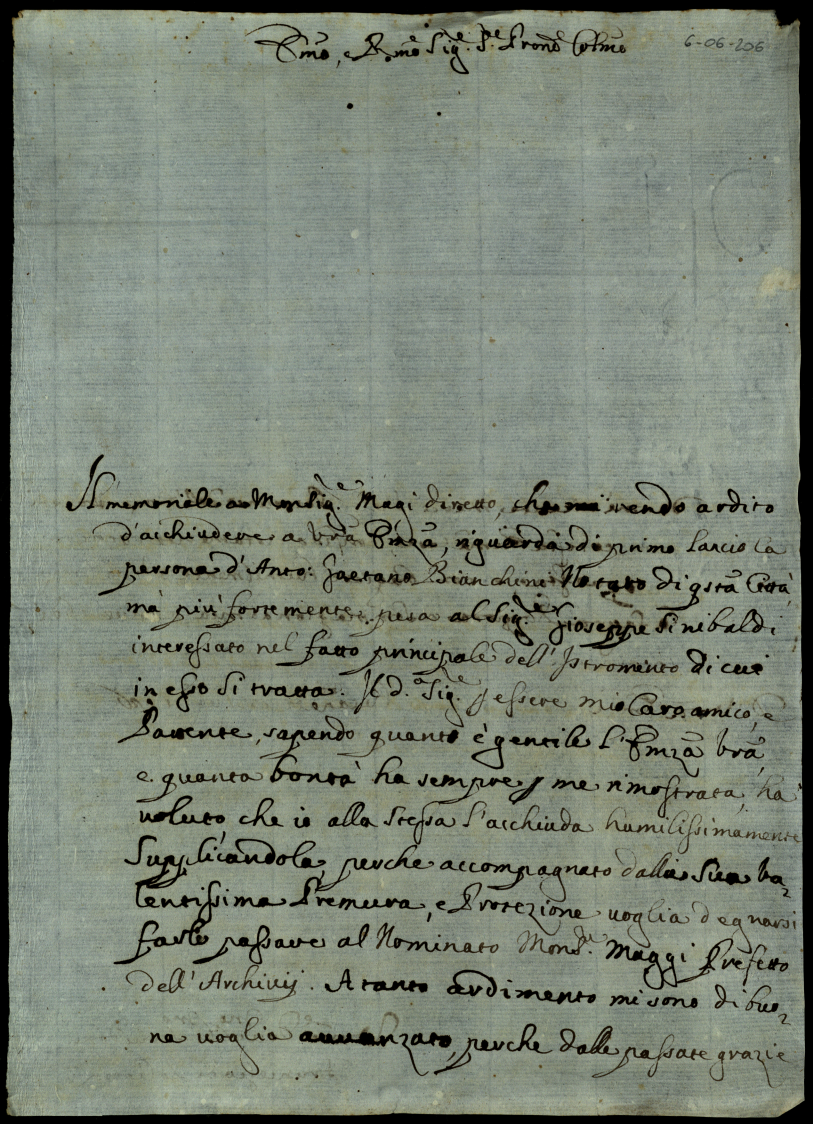 Emo, e Rmo Sig.e P.e Prone Colmo
6-06-206
Il memoriale a Monsig.e Magi diretto, che mi rendo ardito
d'acchiudere a Vrã Emzã, riguarda di primo lancio la
persona d'Anto: Gaetano Bianchini Notaro di qstã Città,
mà più fortemente pesa al Sig.e Gioseppe Sinibaldi
interessato nel fatto principale dell'Istromento di cui
in esso si tratta. Il d. Sig.e p essere mio Caro amico, e
Parente, sapendo quanto è gentile l'Emzã Vrã,
e quanta bontà ha sempre p me rimostrata, ha
voluto che io alla stessa l'acchiuda humilissimamente
Supplicandola, perche accompagnato dalla Sua va-
lentissima Premura, e Protezione voglia degnarsi
farlo passare al Nominato Mons.re Maggi Prefetto
dell'Archivij. A tanto ardimento mi sono di buo-
na voglia avvanzato, perche dalle passate grazie